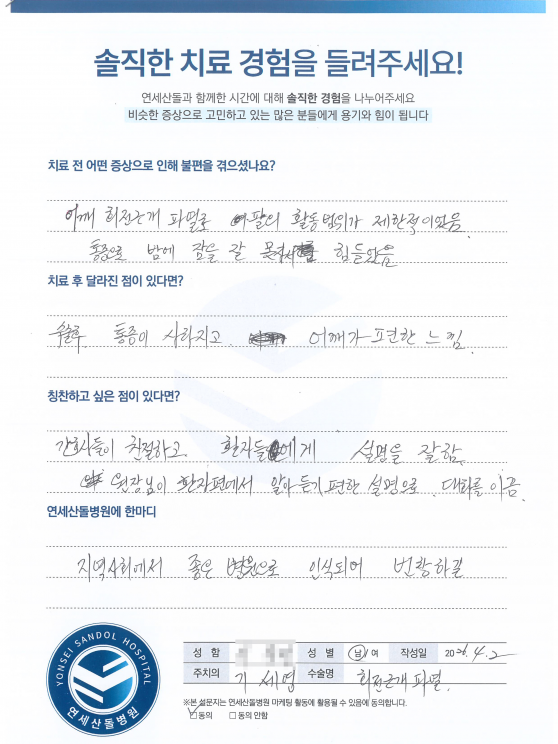 솔직한 치료 경험을 들려주세요!
연세산돌과 함께한 시간에 대해 솔직한 경험을 나누어주세요
비슷한 증상으로 고민하고 있는 많은 분들에게 용기와 힘이 됩니다
치료 전 어떤 증상으로 인해 불편을 겪으셨나요?
어깨 회전근개 파열로 팔의 활동범위가 제한적이었음.
통증으로 밤에 잠을 잘 못자서 힘들었음
치료 후 달라진 점이 있다면?
수술후 통증이 사라지고 어깨가 편한 느낌.
칭찬하고 싶은 점이 있다면?
간호사들이 친절하고 환자들에게 설명을 잘함.
원장님이 환자편에서 알아듣기 편한 설명으로 대화를 이끔.
연세산돌병원에 한마디
지역사회에서 좋은 병원으로 인식되어 번창하길
YONSEI SANDOL HOSPITAL
연세산돌병원
성 함 성 별 남/여 작성일 2026.4.2
주치의 기세명 수술명 회전근개 파열.
※본 설문지는 연세산돌병원 마케팅 활동에 활용될 수 있음에 동의합니다.
☑동의 □동의 안함